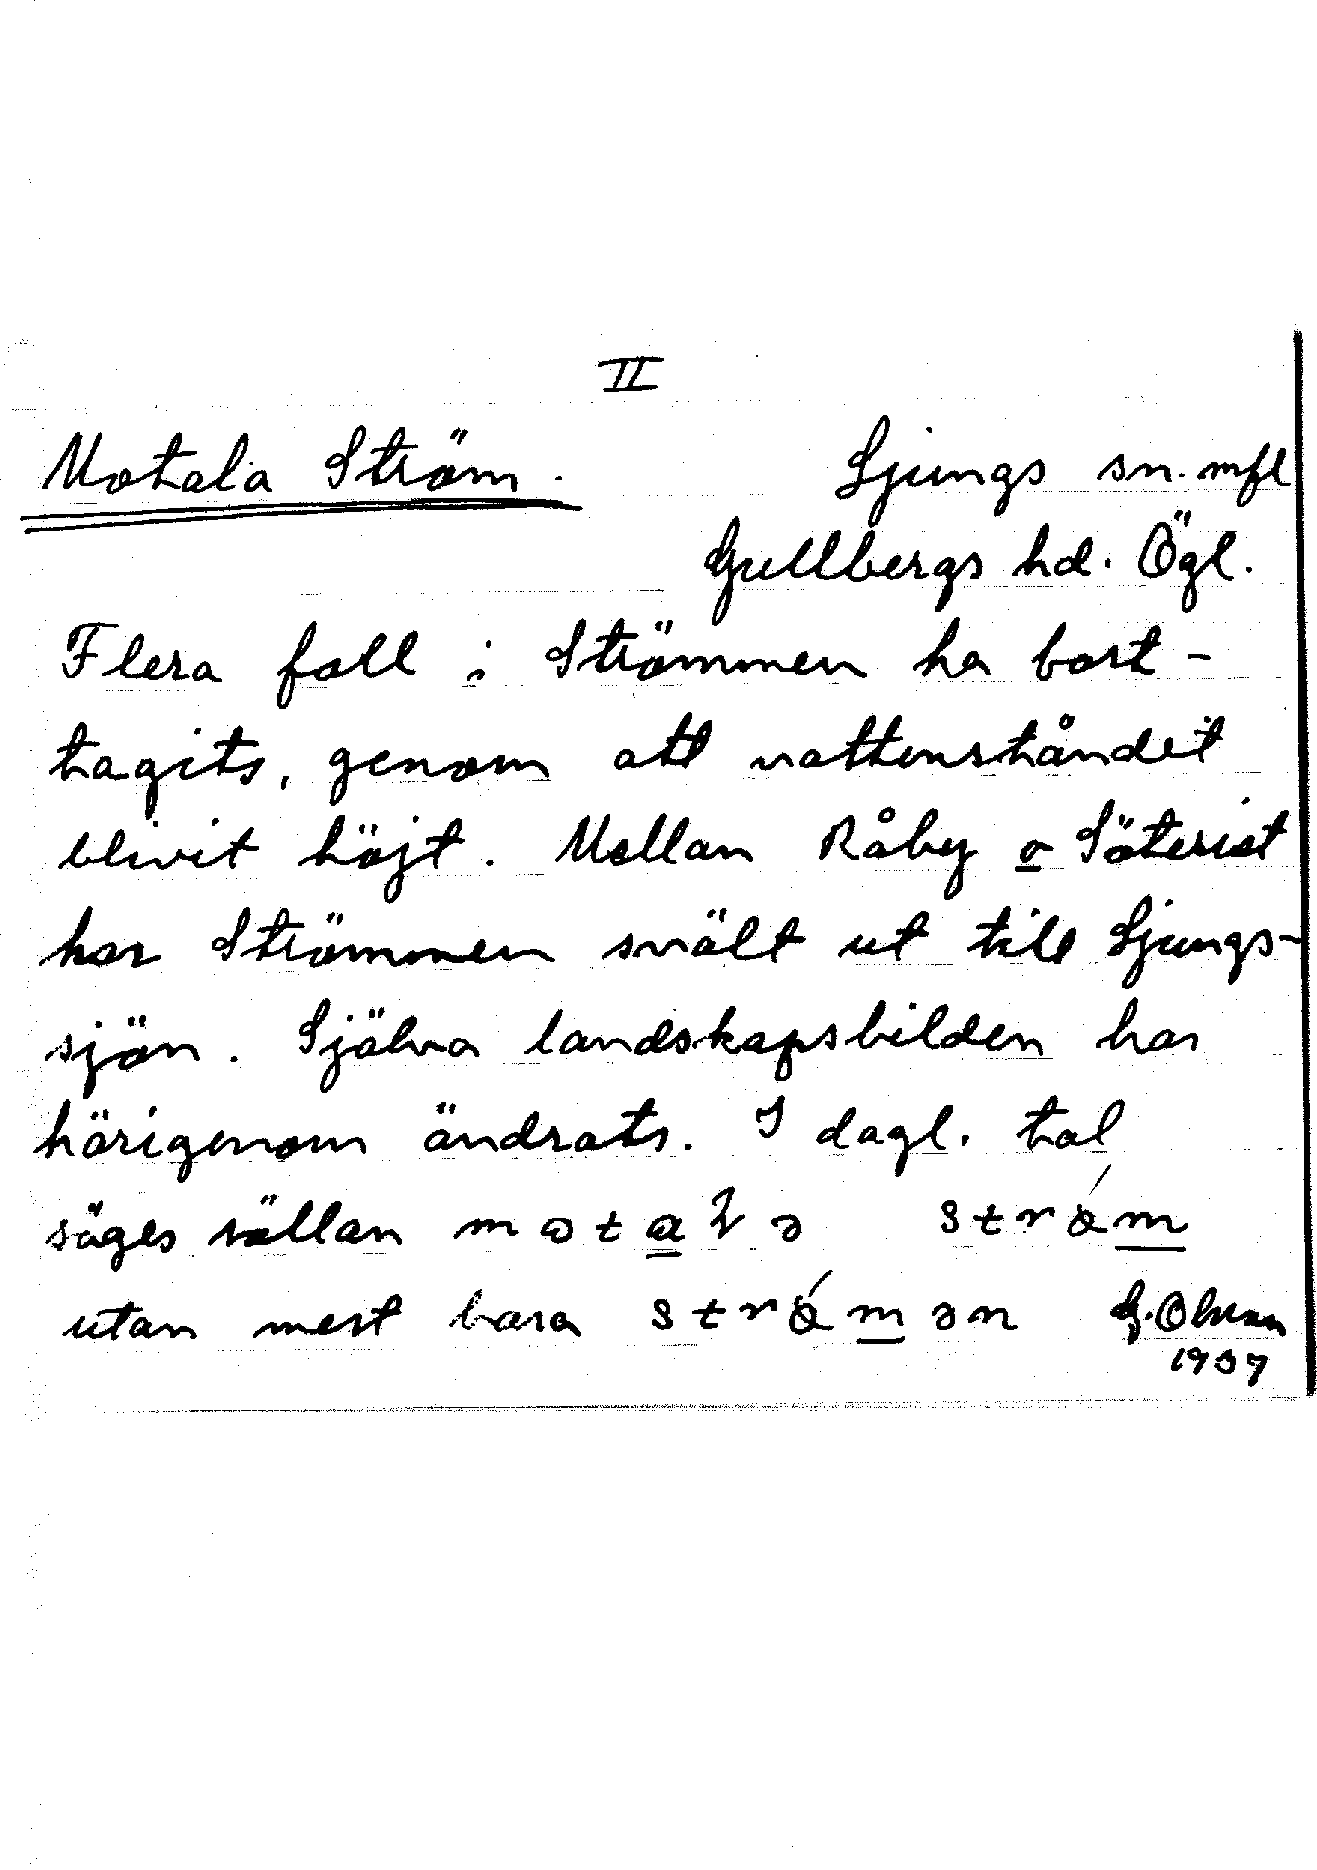 II
Motala Ström.
Ljungs sn. mfl
Gullbergs hd. Ögl.
Flera fall i Strömmen ha bort-
tagits, genom att vattenståndet
blivit höjt. Mellan Råby o
har Strömmen svält ut till Ljungs-
sjön. Själva landskapsbilden har
härigenom ändrats. I dagl. tal
säges sällan
utan mest bara
1937